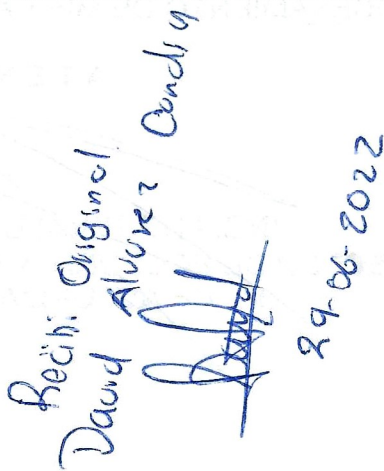 Recibi Original
David Alvarez
29-06-2022